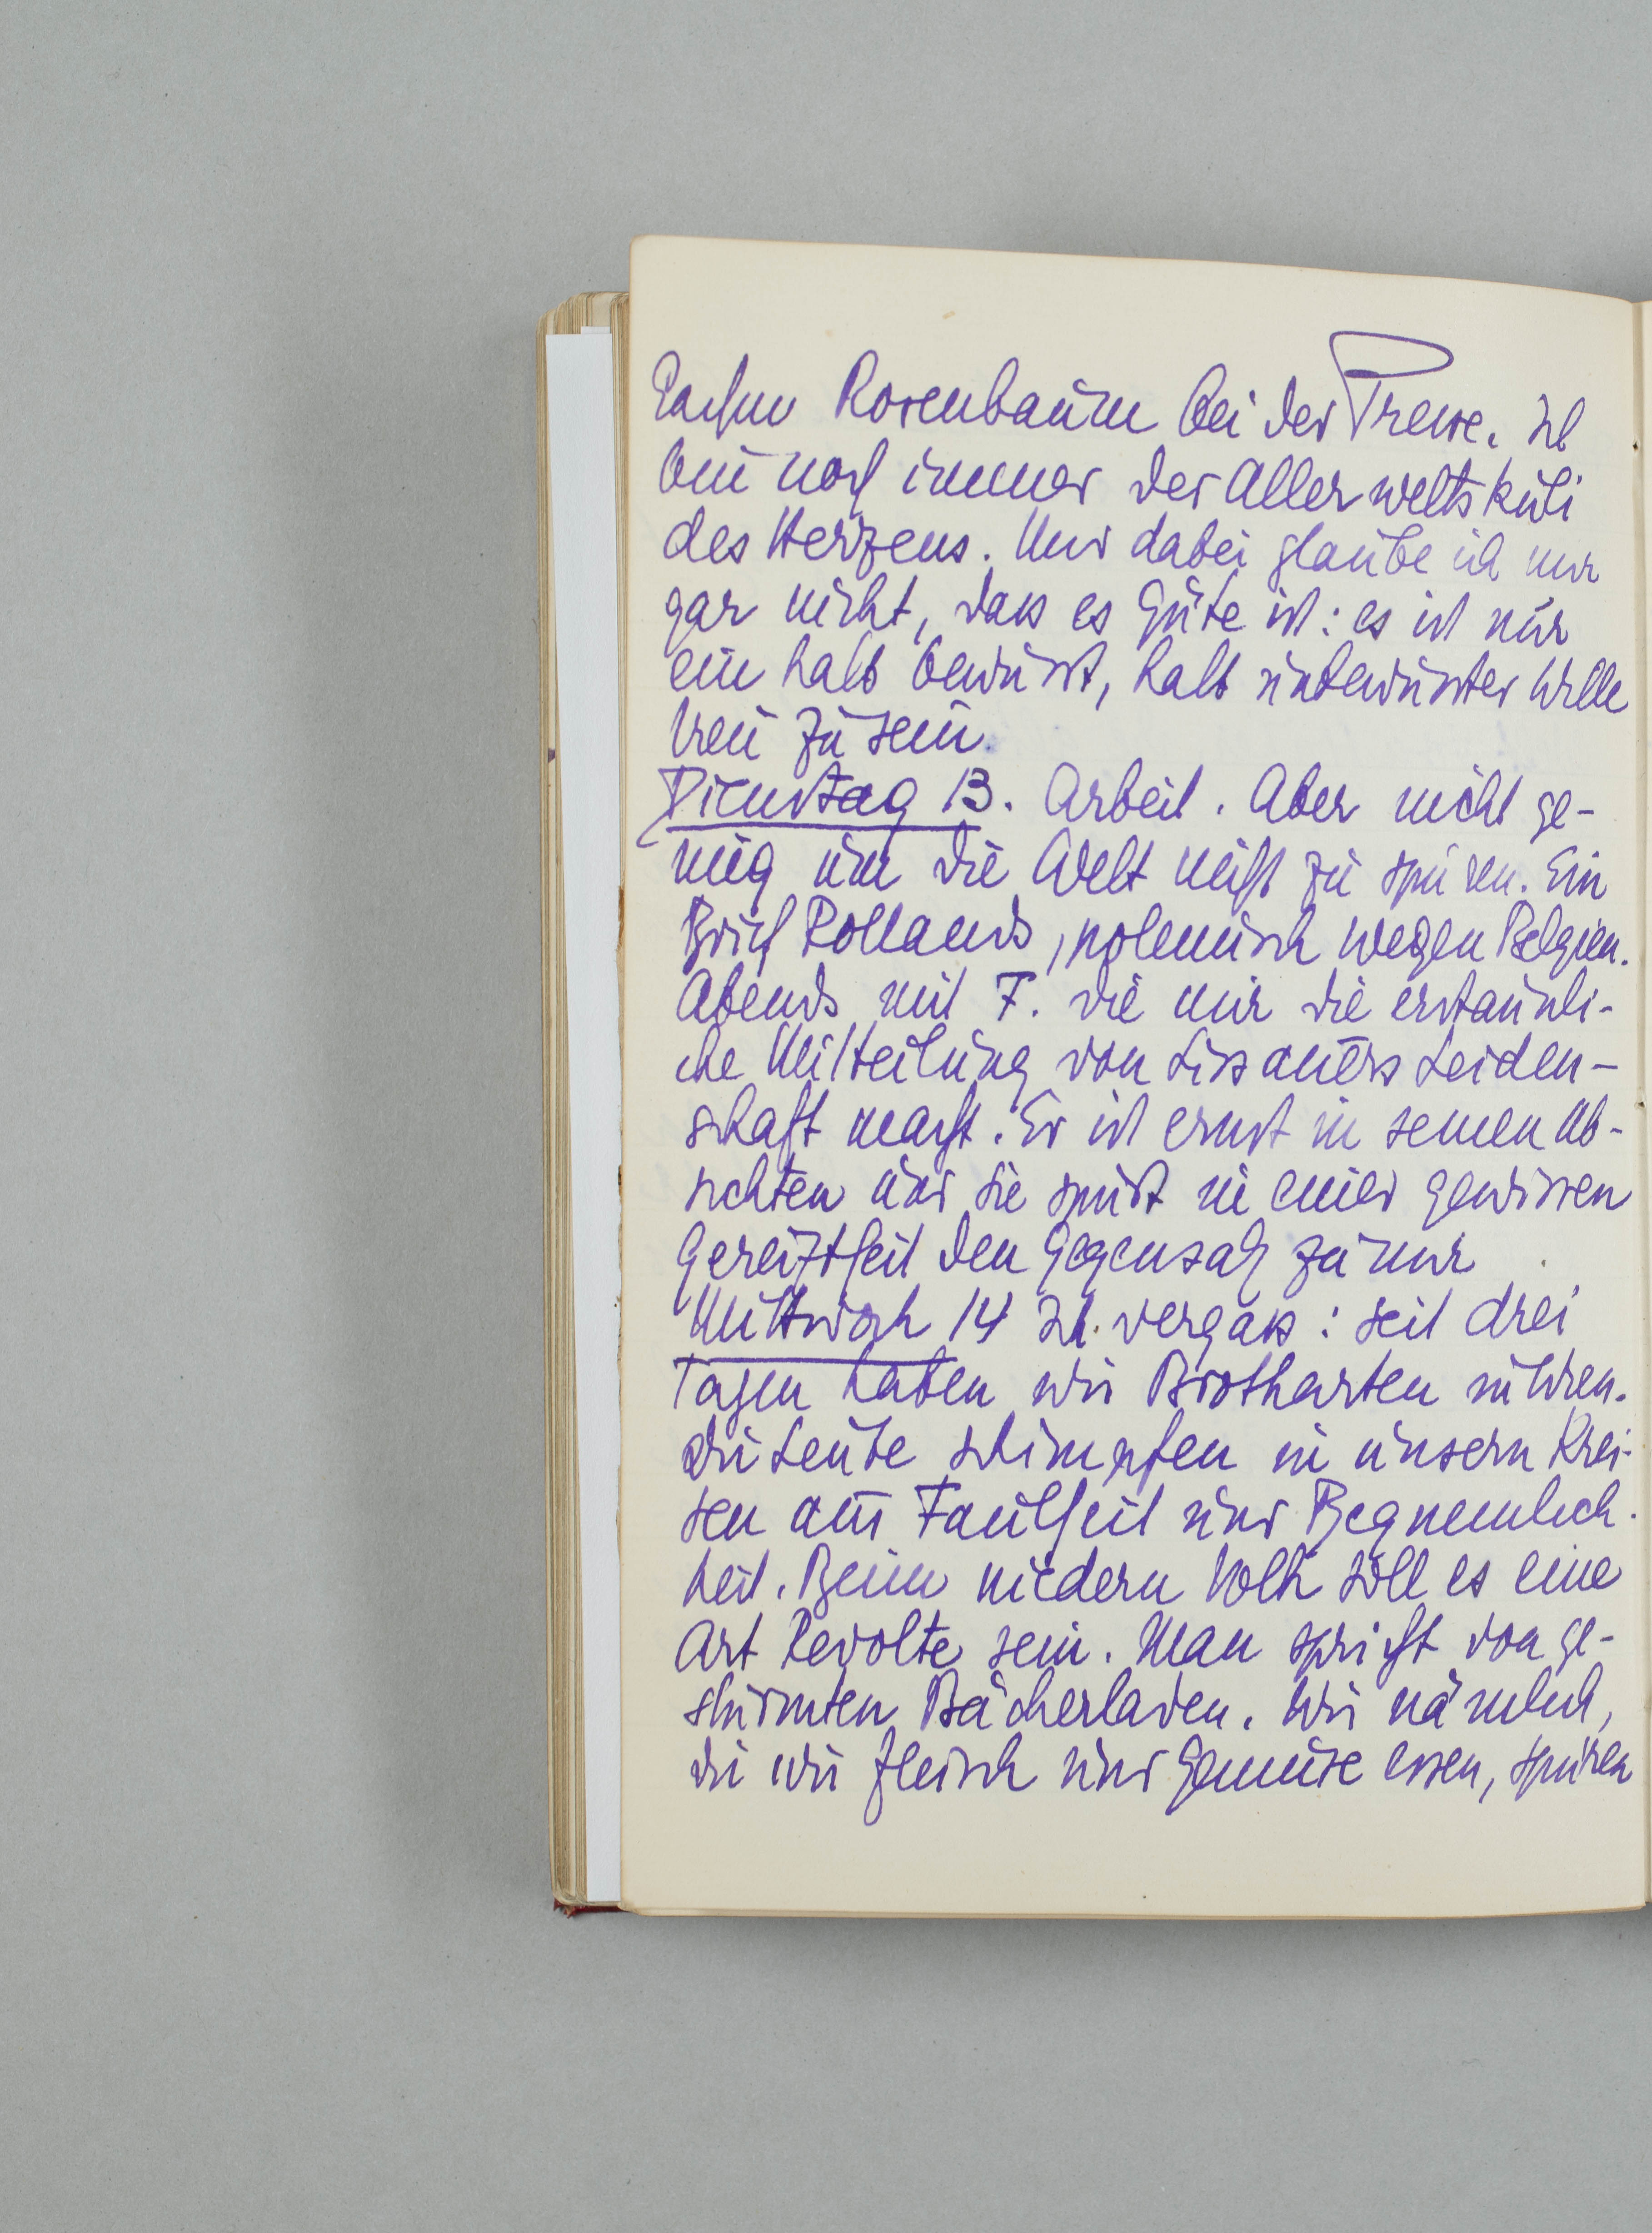 Sachen Rosenbaum bei der Presse. Ich
bin noch immer der Allerweltskuli
des Herzens. Und dabei glaube ich mir
gar nicht, dass es Güte ist: es ist nur
ein halb bewusst, halb unbewusster Wille
treu zu sein.
Dienstag 13. Arbeit. Aber nicht ge-
nug um die Welt nicht zu spüren. Ein
Brief Rollands, polemisch wegen Belgien.
Abends mit F. die mir die erstaunli-
che Mitteilung von Lissauers Leiden-
schaft macht. Er ist ernst in seinen Ab-
sichten und sie spürt in einer gewissen
Gereiztheit den Gegensatz zu mir
Mittwoch 14 Ich vergass: seit drei
Tagen haben wir Brotkarten in Wien.
Die Leute schimpfen in unsern Krei-
sen aus Faulheit und Bequemlich-
keit. Beim niedern Volk soll es eine
Art Revolte sein. Man spricht von ge-
stürmten Bäckerladen. Wir nämlich,
die wir Fleisch und Gemüse essen, spüren